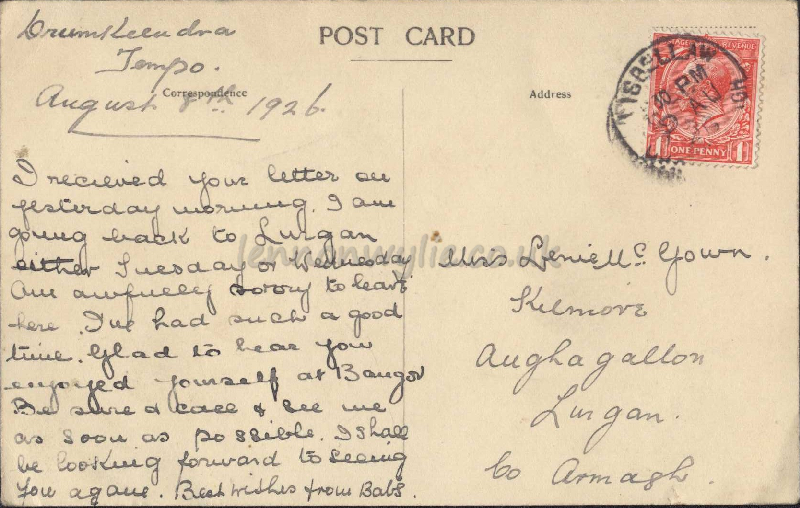 Drumskeendra
Tempo.
August 8th 1926.
POST CARD
Correspondence
Address
I recieved your letter on
yesterday morning. I am
going back to Lurgan
either Tuesday or Wednesday
Am awfully sorry to leave
here. I've had such a good
time. Glad to hear you
enjoyed yourself at Bangor
Be sure & call & see me
as soon as possible. I shall
be looking forward to seeing
you agane. Best wishes from Babs.
LISBELLAW
PM
AU
POSTAGE REVENUE
ONE PENNY
Miss Lenie Mc Gown.
Kilmore
Aughagallon
Lurgan.
Co Armagh.
lennonwylie.co.uk